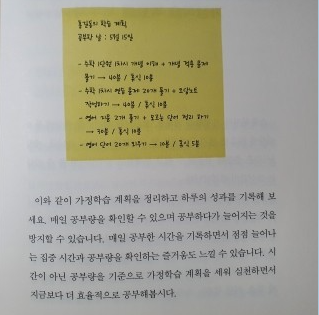 홍길동의 학습 계획
공부한 날 : 5월 15일
- 수학 1단원 1차시 개념 이해 + 개념 적용 문제
풀기 → 40분 / 휴식 10분
- 수학 1차시 연습 문제 20개 풀기 + 오답노트
작성하기 → 40분 / 휴식 10분
- 영어 지문 2개 풀기 + 모르는 단어 정리 하기
→ 30분 / 휴식 10분
- 영어 단어 20개 외우기 → 10분 / 휴식 5분
이와 같이 가정학습 계획을 정리하고 하루의 성과를 기록해 보
세요. 매일 공부량을 확인할 수 있으며 공부하다가 늘어지는 것을
방지할 수 있습니다. 매일 공부한 시간을 기록하면서 점점 늘어나
는 집중 시간과 공부량을 확인하는 즐거움도 느낄 수 있습니다. 시
간이 아닌 공부량을 기준으로 가정학습 계획을 세워 실천하면서
지금보다 더 효율적으로 공부해봅시다.